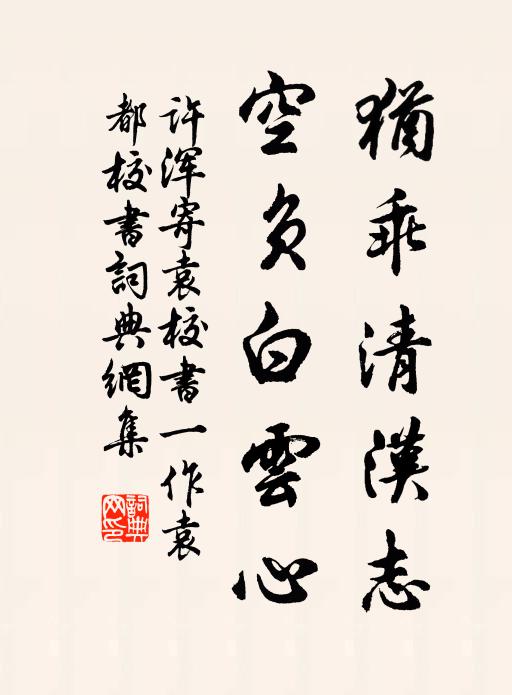 猶乖清漢志
空負白雲心
許渾寄袁校書一作袁
都校書詞典網集
詞典
网印